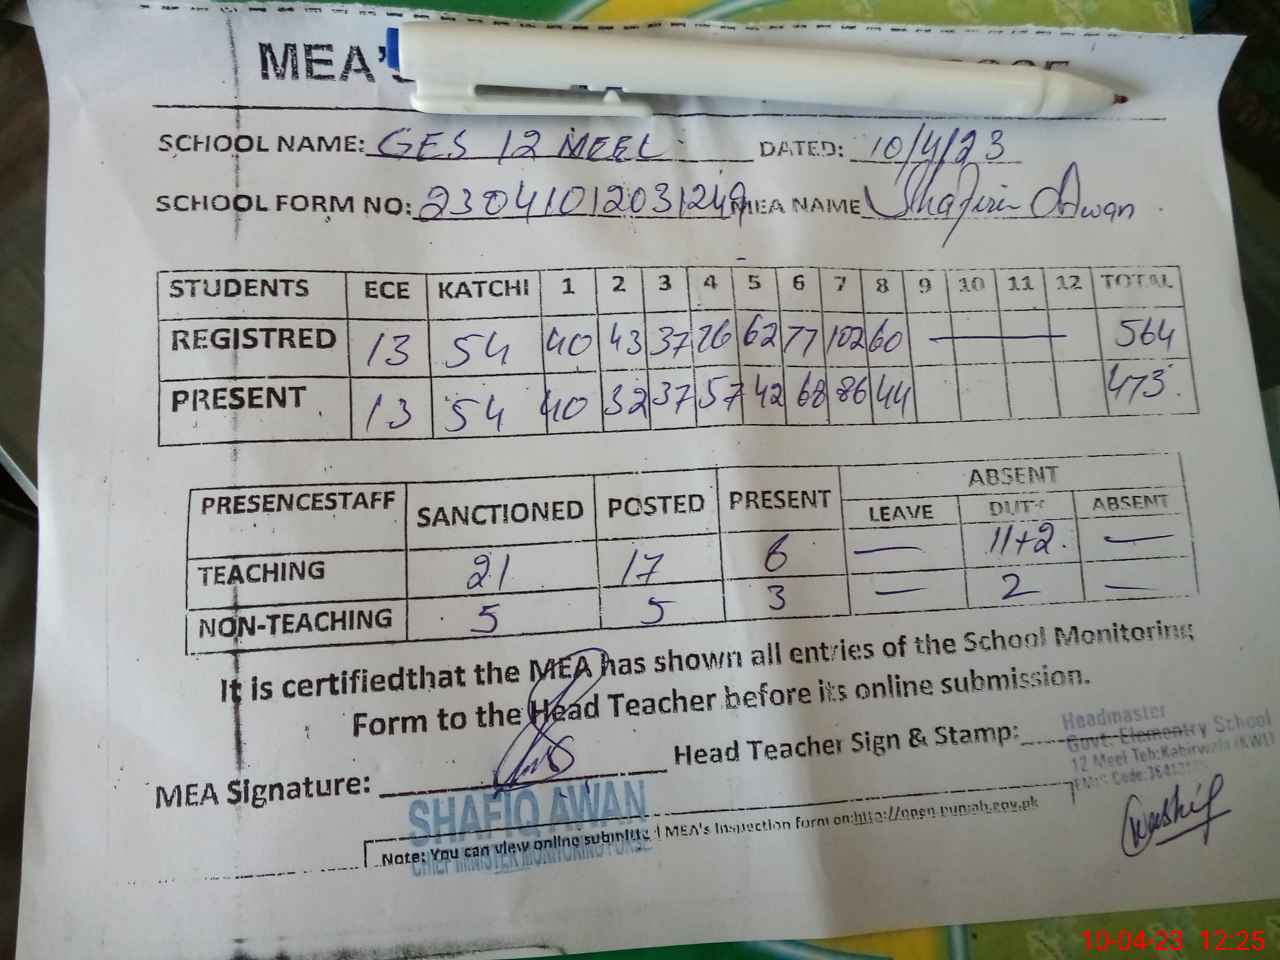 MEA'S
SCHOOL NAME: GES 12 MEEL DATED: 10/4/23
SCHOOL FORM NO: MEA NAME Shafiq Awan
STUDENTS ECE KATCHI 1 2 3 4 5 6 7 8 9 10 11 12 TOTAL
REGISTRED 13 54 40 43 37 76 62 77 102 60 — 564
PRESENT 13 54 40 32 37 57 42 68 86 44 473.
PRESENCESTAFF SANCTIONED POSTED PRESENT ABSENT
LEAVE DUTY ABSENT
TEACHING 21 17 6 — 11+2. —
NON-TEACHING 5 5 3 — 2 —
It is certifiedthat the MEA has shown all entries of the School Monitoring
Form to the Head Teacher before its online submission.
MEA Signature: Head Teacher Sign & Stamp:
Headmaster
Govt: Elementry School
12 Meel Teh: Kabirwala (KWL)
SHAFIQ AWAN
CHIEF MINISTER MONITORING FORCE
Note: You can view online submitted MEA's Inspection form on:http://open.punjab.gov.pk
10-04-23 12:25